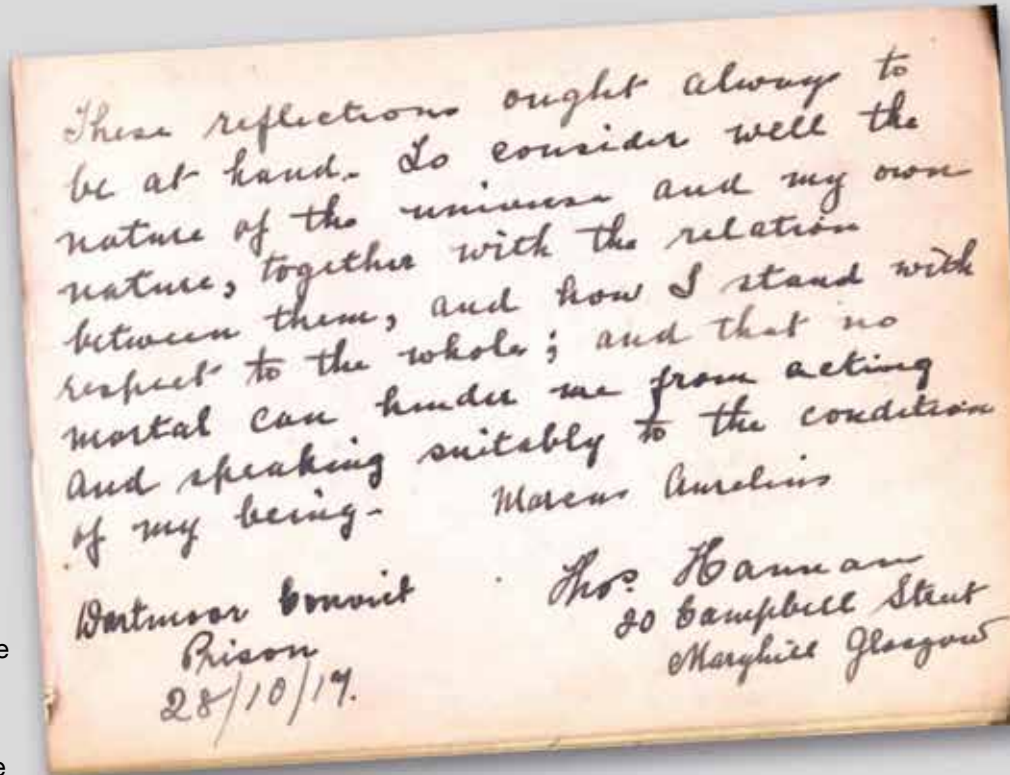 These reflections ought always to
be at hand. To consider well the
nature of the universe and my own
nature, together with the relation
between them, and how I stand with
respect to the whole; and that no
mortal can hinder me from acting
and speaking suitably to the condition
of my being. Marcus Aurelius
Dartmoor Convict
Prison
28/10/17.
Thos. Hannan
20 Campbell Street
Maryhill Glasgow
e
e